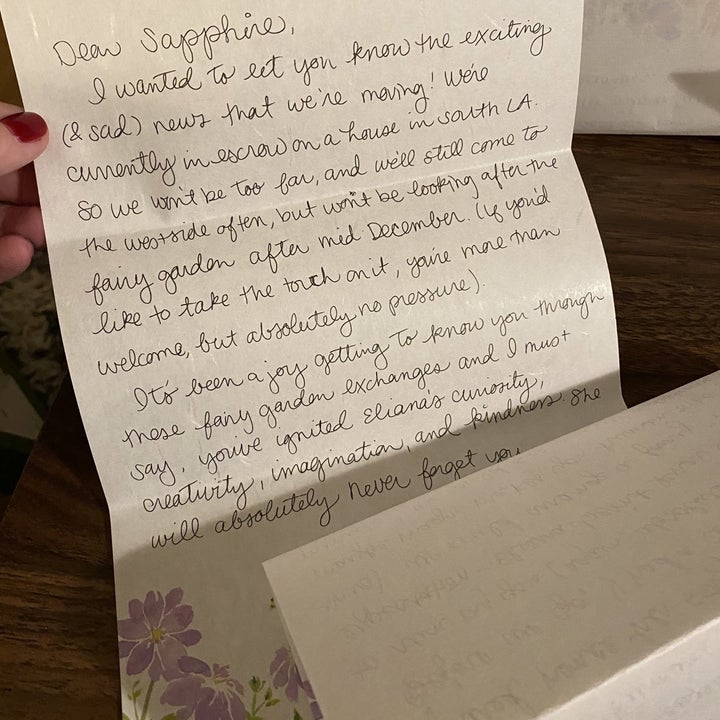 Dear Sapphire,
I wanted to let you know the exciting
(& sad) news that we're moving! We're
currently in escrow on a house in south LA.
So we won't be too far, and we'll still come to
the westside often, but won't be looking after the
fairy garden after mid December. (If you'd
like to take the torch on it, you're more than
welcome, but absolutely no pressure).
It's been a joy getting to know you through
these fairy garden exchanges and I must
say, you've ignited Eliana's curiosity,
creativity, imagination, and kindness. She
will absolutely never forget you